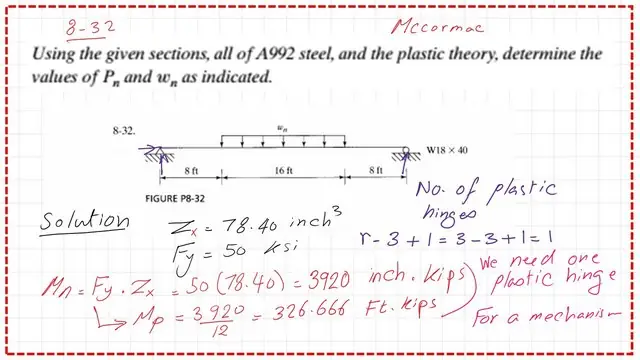 8-32 Mccormac
Using the given sections, all of A992 steel, and the plastic theory, determine the
values of Pn and wn as indicated.
8-32.
wn
W18 × 40
8 ft 16 ft 8 ft
FIGURE P8-32
No. of plastic
hinges
r - 3 + 1 = 3 - 3 + 1 = 1
Solution
Zx = 78.40 inch³
Fy = 50 ksi
Mn = Fy . Zx = 50 (78.40) = 3920 inch. kips
↳ Mp = 3920/12 = 326.666 Ft. kips
We need one
plastic hinge
For a mechanism